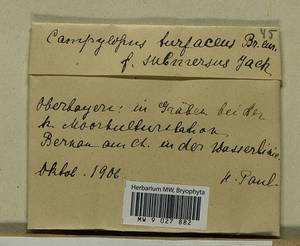 45
Campylopus turfaceus Br. eur.
f. submersus Jack.
Oberbayern: in Gräben bei der
k. Moorkulturstation
Bernau am Ch. in der Wasserlinie.
Oktob. 1906
H. Paul.
Herbarium MW, Bryophyta
MW 9 027 882